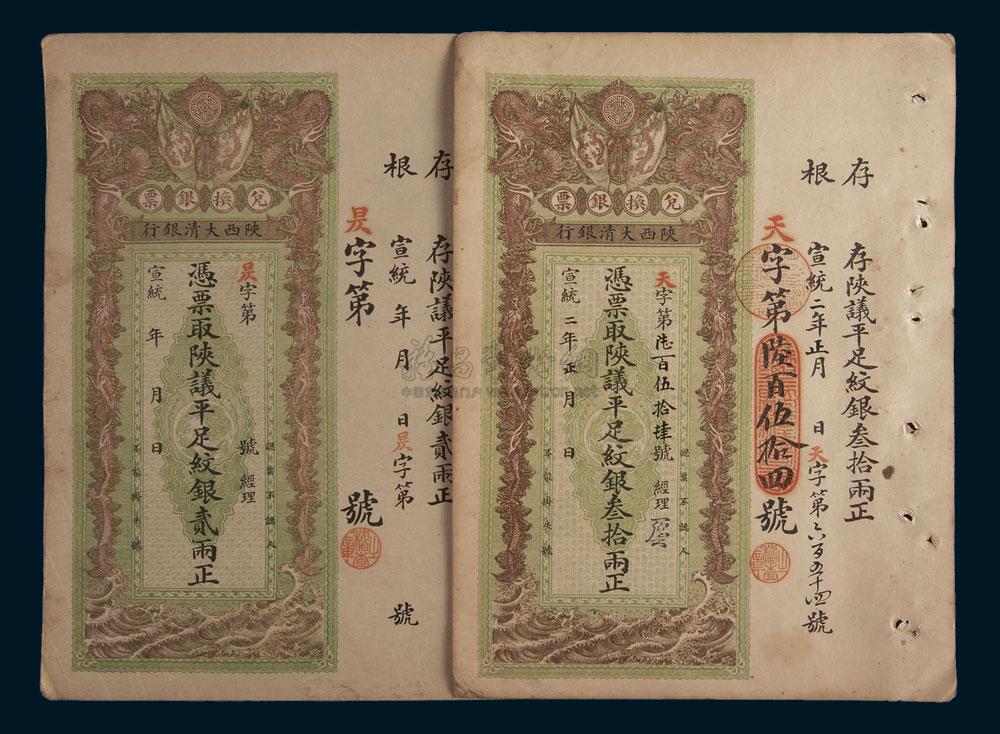 兌換銀票
陝西大清銀行
昃字第 號 經理
憑票取陝議平足紋銀貳兩正
宣統 年 月 日
認票不認人
不能掛失號
昃字第 號
存根
宣統 年 月 日昃字第 號
存陝議平足紋銀貳兩正
兌換銀票
陝西大清銀行
天字第陸百伍拾肆號 經理
憑票取陝議平足紋銀叁拾兩正
宣統二年正月 日
認票不認人
不能掛失號
天字第陸百伍拾四號
存根
存陝議平足紋銀叁拾兩正
宣統二年正月 日天字第六百五十四號